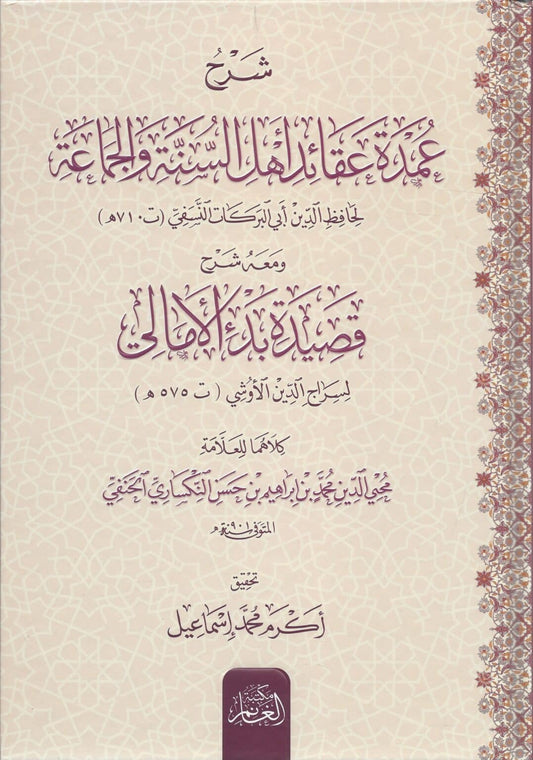 شرح
عُمْدَة عَقَائِد أَهْلِ السُّنَّةِ وَالجَمَاعَةِ
لحَافِظِ الدِّين أَبي البَرَكات النَّسَفِيّ (ت ٧١٠هـ)
ومعه شرح
قَصِيْدَة بَدْءِ الأَمَالِي
لسِراجِ الدِّين الأُوشي (ت ٥٧٥ هـ)
كلاهُما للعَلاّمَة
مُحْيي الدِّين مُحَمَّد بْن إبرَاهِيم بْن حَسَن النِّكْسَاري الحَنَفي
المتوفى سنة ٩٠١ هـ
تحقيق
أكرم محمَّد إسماعيل
مكتبة
الغانم